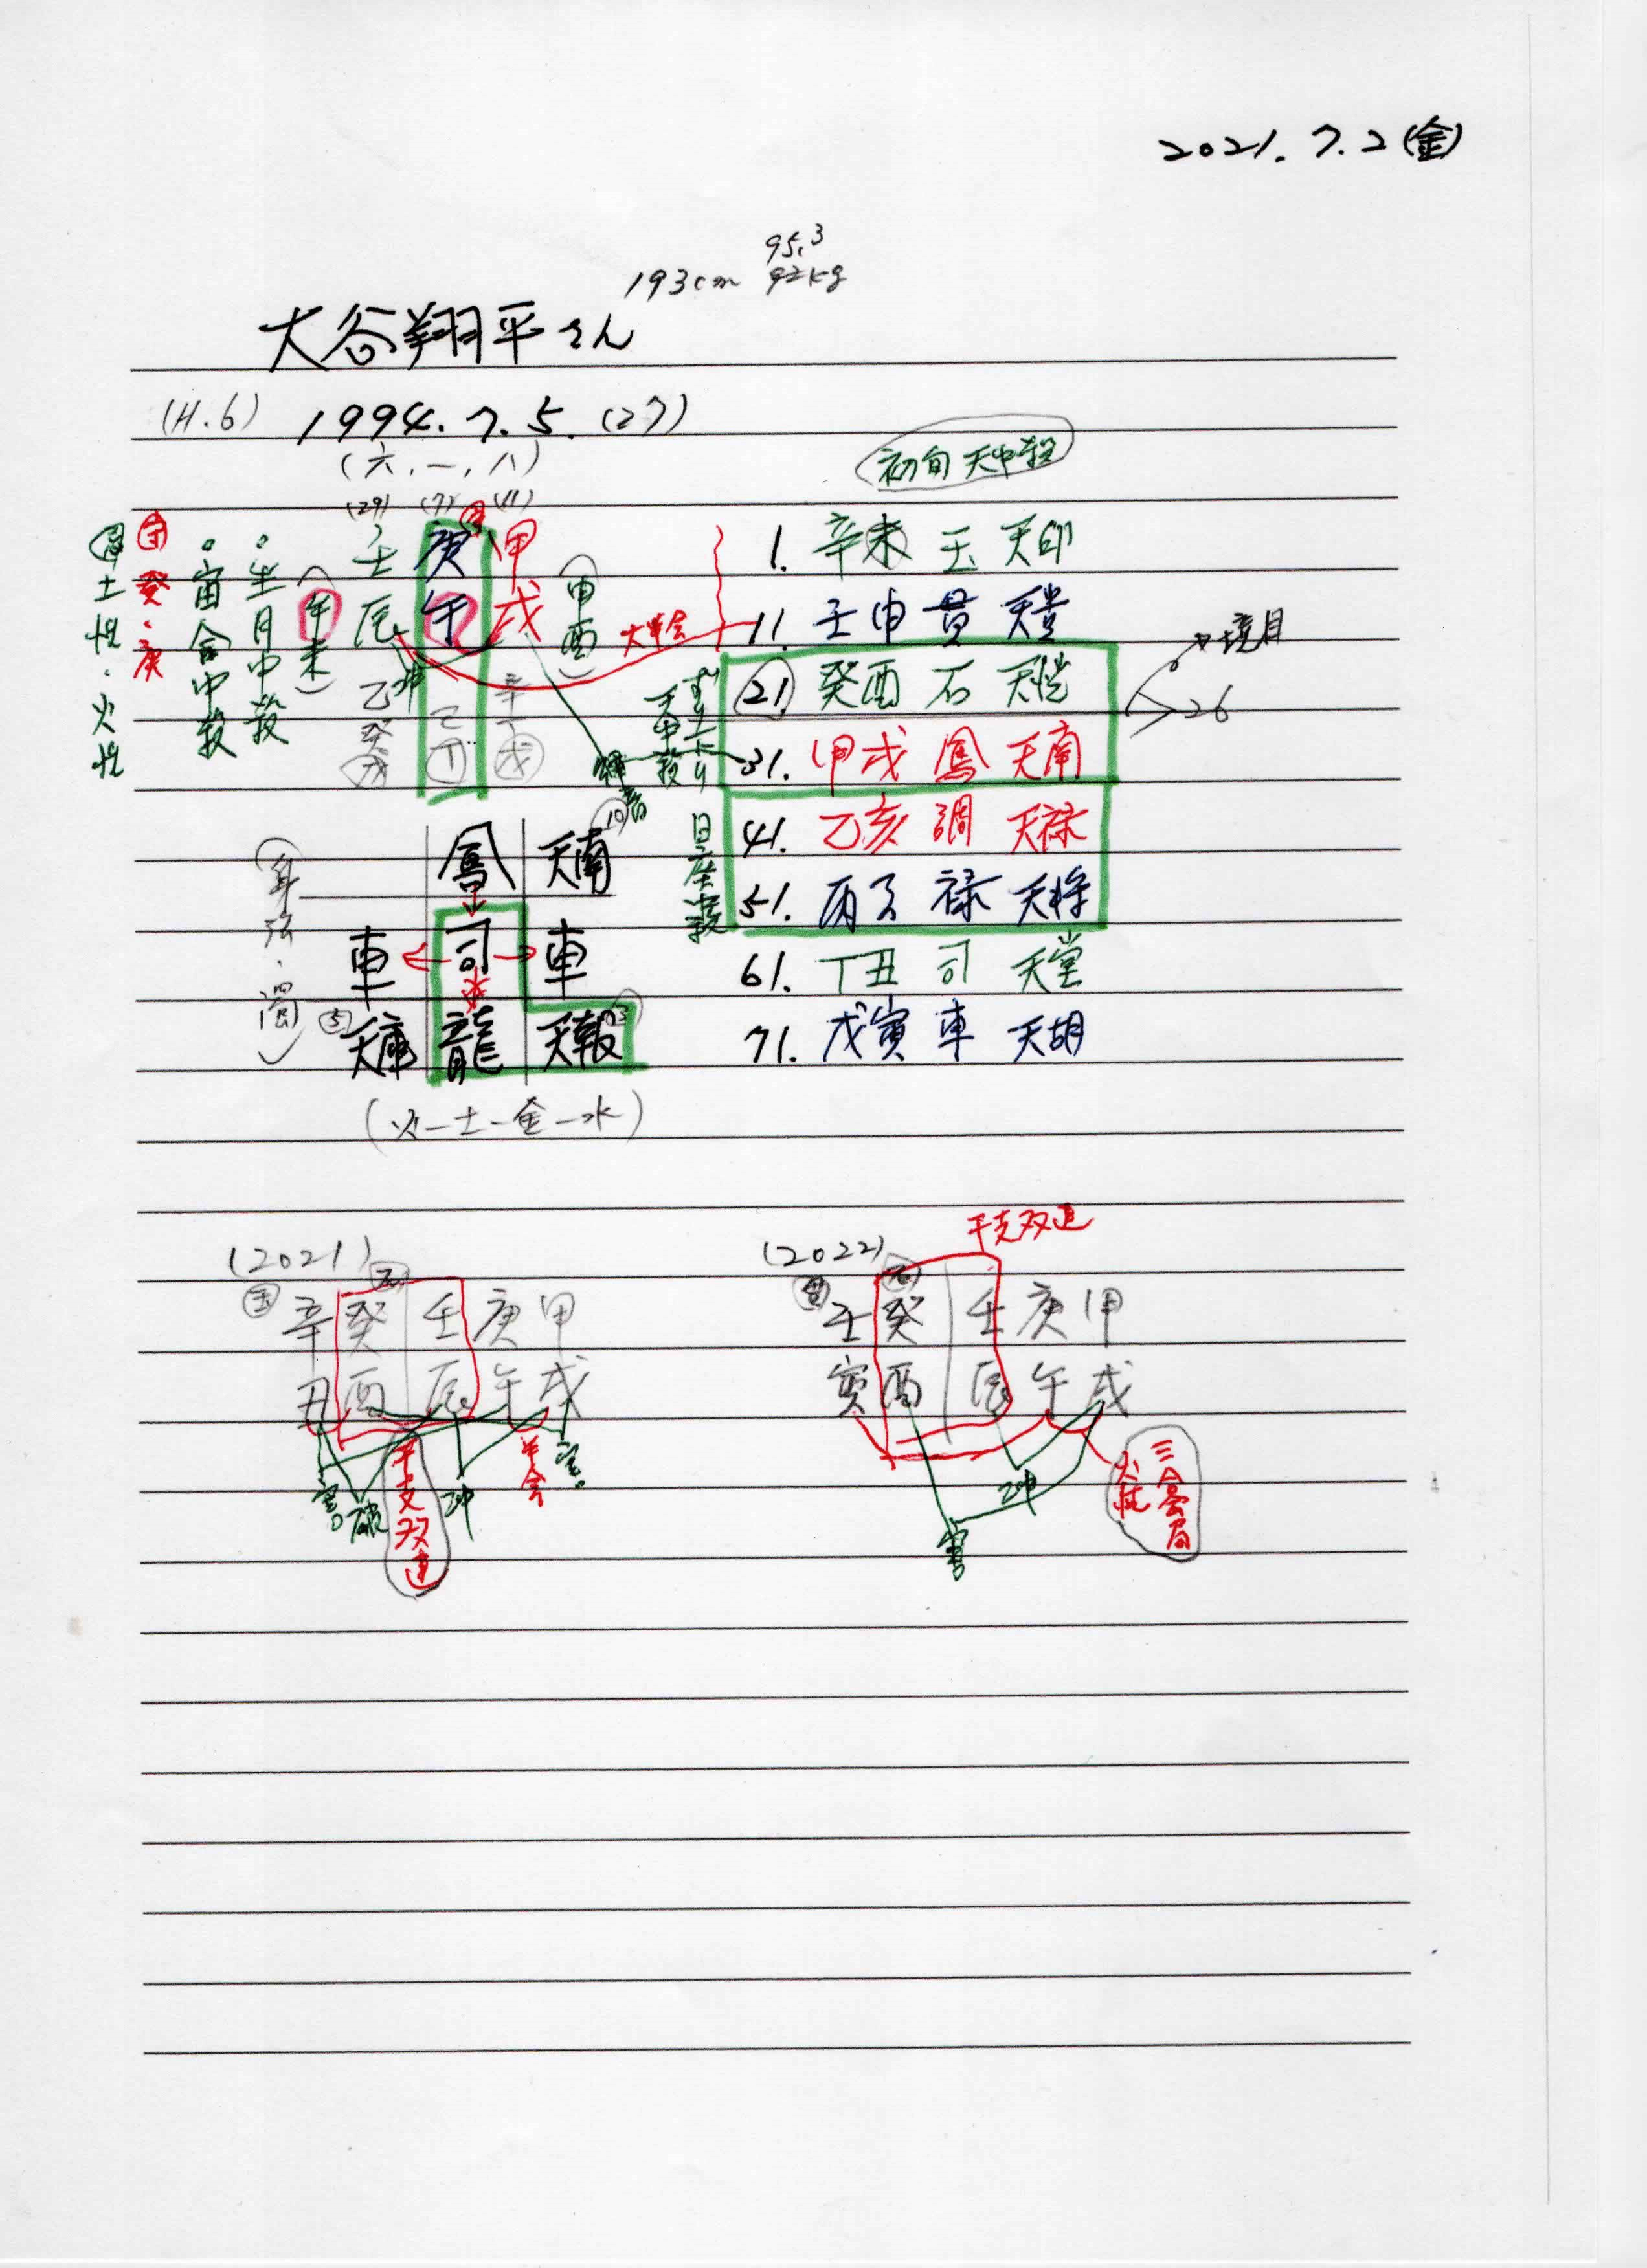 2021.7.2(金)
95.3
193cm 92kg
大谷翔平さん
(H.6) 1994.7.5.(27)
(六,一,八)
初旬天中殺
(29) (7) (11)
壬 庚 甲
辰 午 戌
(午未)
(申酉)
乙 己 辛
癸 丁 丁
戊 戊
冲
大半会
納音
・生月中殺
・宿命中殺
守 癸・庚
忌 土性・火性
1. 辛未 玉 天印
11. 壬申 貫 天貴
21. 癸酉 石 天恍
31. 甲戌 鳳 天南
41. 乙亥 調 天禄
51. 丙子 禄 天将
61. 丁丑 司 天堂
71. 戊寅 車 天胡
境目
26
天中殺
日座中殺
鳳 天南 10
車 司 車
5 天庫 龍 天報 3
(身強・濁)
(火―土―金―水)
(2021)
玉 石
辛 癸 壬 庚 甲
丑 酉 辰 午 戌
害 破 干支双連 冲 半会 害
(2022) 干支双連
貫 石
壬 癸 壬 庚 甲
寅 酉 辰 午 戌
冲
害
火性 三合会局